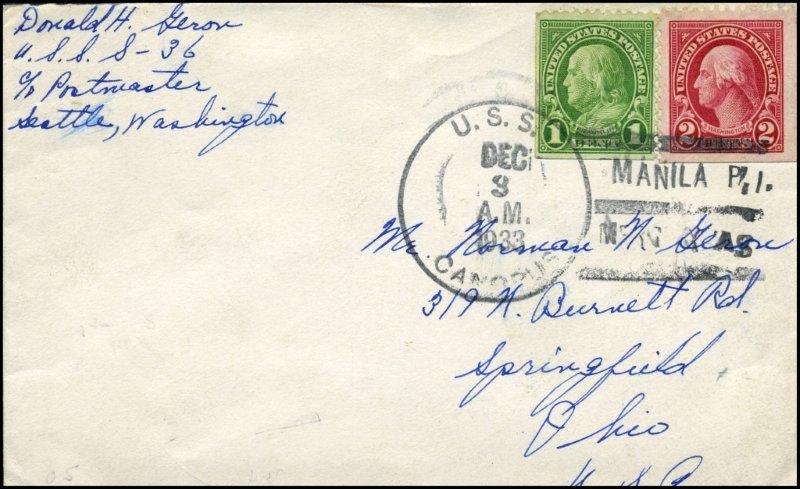 Donald H. Geron
U.S.S. S-36
c/o Postmaster
Seattle, Washington
UNITED STATES POSTAGE
1 FRANKLIN 1
CENT
UNITED STATES POSTAGE
2 WASHINGTON 2
CENTS
U. S. S.
DEC
9
A.M.
1933
CANOPUS
MANILA P.I.
Mr. Norman N. Geron
319 N. Burnett Rd.
Springfield
Ohio
U.S.A.